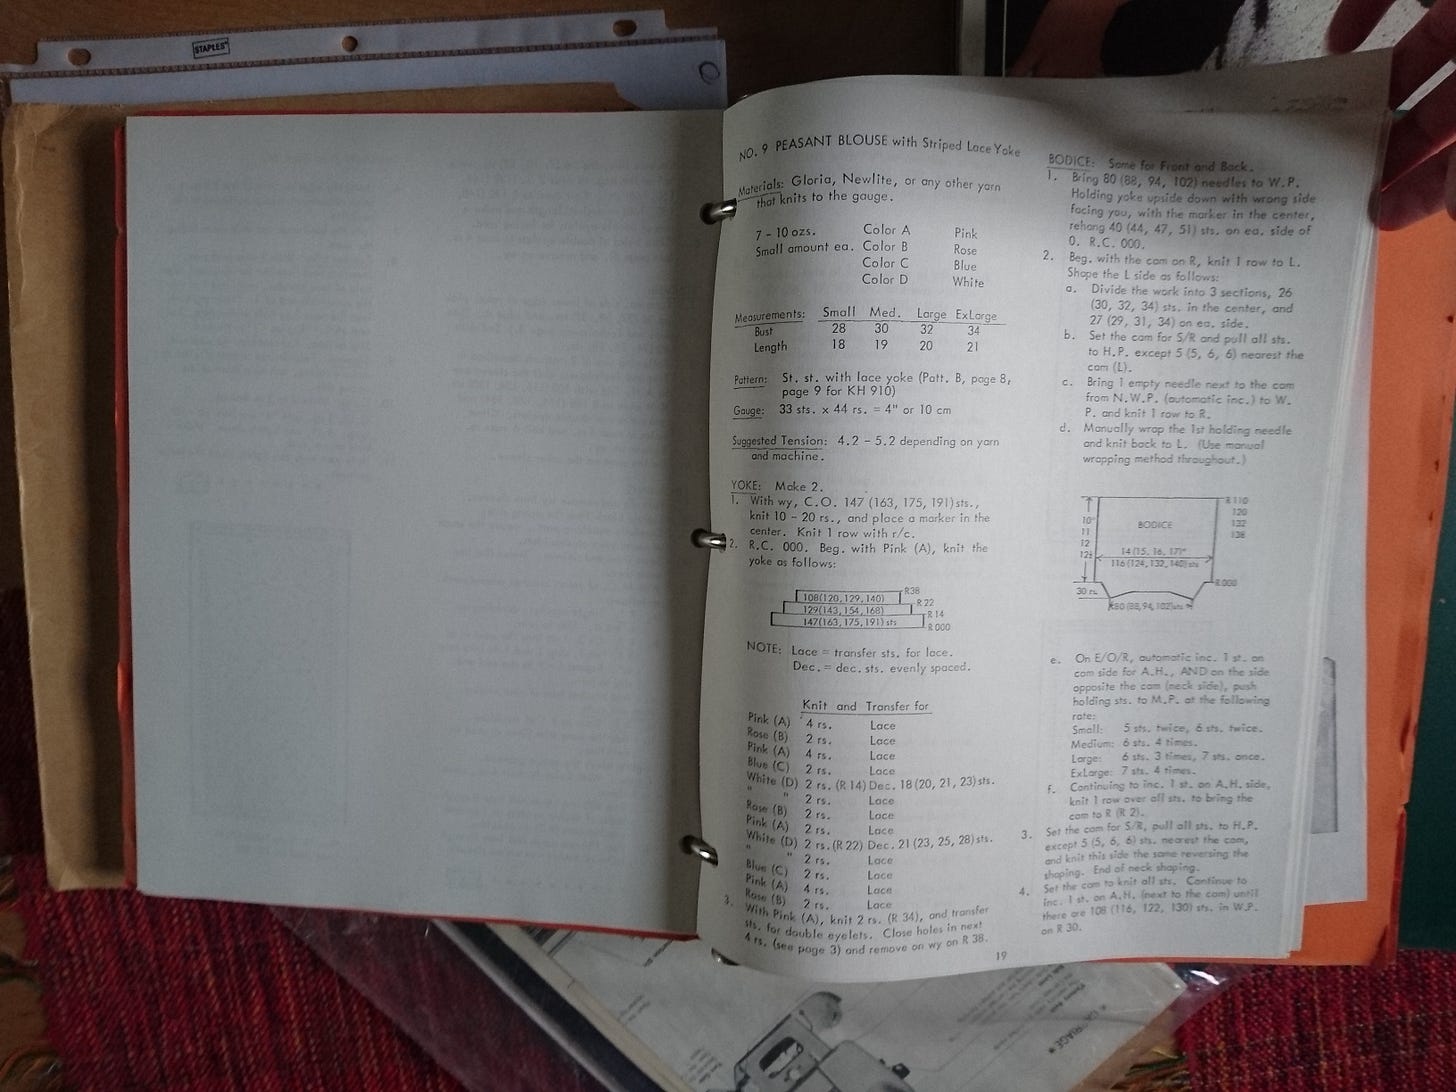 STAPLES
NO. 9 PEASANT BLOUSE with Striped Lace Yoke
Materials: Gloria, Newlite, or any other yarn
that knits to the gauge.
7 - 10 ozs. Color A Pink
Small amount ea. Color B Rose
Color C Blue
Color D White
Measurements: Small Med. Large ExLarge
Bust 28 30 32 34
Length 18 19 20 21
Pattern: St. st. with lace yoke (Patt. B, page 8,
page 9 for KH 910)
Gauge: 33 sts. x 44 rs. = 4" or 10 cm
Suggested Tension: 4.2 - 5.2 depending on yarn
and machine.
YOKE: Make 2.
1. With wy, C.O. 147 (163, 175, 191) sts.,
knit 10 - 20 rs., and place a marker in the
center. Knit 1 row with r/c.
2. R.C. 000. Beg. with Pink (A), knit the
yoke as follows:
108(120, 129, 140) R38
129(143, 154, 168) R 22
147(163, 175, 191) sts R 14
R 000
NOTE: Lace = transfer sts. for lace.
Dec. = dec. sts. evenly spaced.
Knit and Transfer for
Pink (A) 4 rs. Lace
Rose (B) 2 rs. Lace
Pink (A) 4 rs. Lace
Blue (C) 2 rs. Lace
White (D) 2 rs. (R 14) Dec. 18 (20, 21, 23) sts.
" " 2 rs. Lace
Rose (B) 2 rs. Lace
Pink (A) 2 rs. Lace
White (D) 2 rs. (R 22) Dec. 21 (23, 25, 28) sts.
" " 2 rs. Lace
Blue (C) 2 rs. Lace
Pink (A) 4 rs. Lace
Rose (B) 2 rs. Lace
3. With Pink (A), knit 2 rs. (R 34), and transfer
sts. for double eyelets. Close holes in next
4 rs. (see page 3) and remove on wy on R 38.
BODICE: Same for Front and Back.
1. Bring 80 (88, 94, 102) needles to W.P.
Holding yoke upside down with wrong side
facing you, with the marker in the center,
rehang 40 (44, 47, 51) sts. on ea. side of
0. R.C. 000.
2. Beg. with the cam on R, knit 1 row to L.
Shape the L side as follows:
a. Divide the work into 3 sections, 26
(30, 32, 34) sts. in the center, and
27 (29, 31, 34) on ea. side.
b. Set the cam for S/R and pull all sts.
to H.P. except 5 (5, 6, 6) nearest the
cam (L).
c. Bring 1 empty needle next to the cam
from N.W.P. (automatic inc.) to W.
P. and knit 1 row to R.
d. Manually wrap the 1st holding needle
and knit back to L. (Use manual
wrapping method throughout.)
R 110
120
132
138
10"
11
12
12½
BODICE
14 (15, 16, 17)"
116 (124, 132, 140) sts
R 000
30 rs.
80 (88, 94, 102) sts
e. On E/O/R, automatic inc. 1 st. on
cam side for A.H., AND on the side
opposite the cam (neck side), push
holding sts. to M.P. at the following
rate:
Small: 5 sts. twice, 6 sts. twice.
Medium: 6 sts. 4 times.
Large: 6 sts. 3 times, 7 sts. once.
ExLarge: 7 sts. 4 times.
f. Continuing to inc. 1 st. on A.H. side,
knit 1 row over all sts. to bring the
cam to R (R 2).
3. Set the cam for S/R, pull all sts. to H.P.
except 5 (5, 6, 6) sts. nearest the cam,
and knit this side the same reversing the
shaping. End of neck shaping.
4. Set the cam to knit all sts. Continue to
inc. 1 st. on A.H. (next to the cam) until
there are 108 (116, 122, 130) sts. in W.P.
on R 30.
19
CARRIAGE